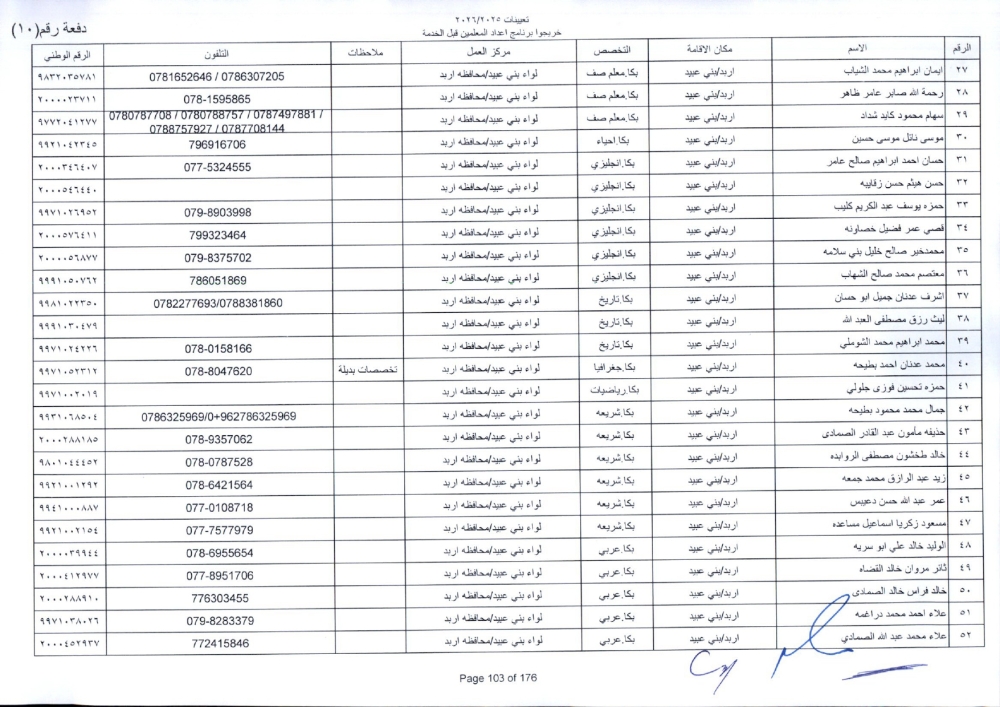 تعيينات ٢٠٢٦/٢٠٢٥
خريجوا برنامج اعداد المعلمين قبل الخدمة
دفعة رقم(١٠)
الرقم الاسم مكان الاقامة التخصص مركز العمل ملاحظات التلفون الرقم الوطني
٢٧ ايمان ابراهيم محمد الشياب اربد/بني عبيد بكا.معلم صف لواء بني عبيد/محافظه اربد 0781652646 / 0786307205 ٩٨٣٢٠٣٥٧٨١
٢٨ رحمة الله صابر عامر ظاهر اربد/بني عبيد بكا.معلم صف لواء بني عبيد/محافظه اربد 078-1595865 ٢٠٠٠٠٢٣٧١١
٢٩ سهام محمود كايد شداد اربد/بني عبيد بكا.معلم صف لواء بني عبيد/محافظه اربد 0780787708 / 0780788757 / 0787497881 / 0788757927 / 0787708144 ٩٧٧٢٠٤١٢٧٧
٣٠ موسى نائل موسى حسين اربد/بني عبيد بكا.احياء لواء بني عبيد/محافظه اربد 796916706 ٩٩٢١٠٤٢٣٤٥
٣١ حسان احمد ابراهيم صالح عامر اربد/بني عبيد بكا.انجليزي لواء بني عبيد/محافظه اربد 077-5324555 ٢٠٠٠٣٤٦٤٠٧
٣٢ حسن هيثم حسن زقايبه اربد/بني عبيد بكا.انجليزي لواء بني عبيد/محافظه اربد ٢٠٠٠٥٤٦٤٤٠
٣٣ حمزه يوسف عبد الكريم كليب اربد/بني عبيد بكا.انجليزي لواء بني عبيد/محافظه اربد 079-8903998 ٩٩٧١٠٢٦٩٥٢
٣٤ قصي عمر فضيل خصاونه اربد/بني عبيد بكا.انجليزي لواء بني عبيد/محافظه اربد 799323464 ٢٠٠٠٥٧٦٤١١
٣٥ محمدخير صالح خليل بني سلامه اربد/بني عبيد بكا.انجليزي لواء بني عبيد/محافظه اربد 079-8375702 ٢٠٠٠٠٥٦٨٧٧
٣٦ معتصم محمد صالح الشهاب اربد/بني عبيد بكا.انجليزي لواء بني عبيد/محافظه اربد 786051869 ٩٩٩١٠٥٠٧٦٢
٣٧ اشرف عدنان جميل ابو حسان اربد/بني عبيد بكا.تاريخ لواء بني عبيد/محافظه اربد 0782277693/0788381860 ٩٩٨١٠٢٢٣٥٠
٣٨ ليث رزق مصطفى العبد الله اربد/بني عبيد بكا.تاريخ لواء بني عبيد/محافظه اربد ٩٩٩١٠٣٠٤٧٩
٣٩ محمد ابراهيم محمد الشوملي اربد/بني عبيد بكا.تاريخ لواء بني عبيد/محافظه اربد 078-0158166 ٩٩٧١٠٢٤٢٢٦
٤٠ محمد عدنان احمد بطيحه اربد/بني عبيد بكا.جغرافيا لواء بني عبيد/محافظه اربد تخصصات بديلة 078-8047620 ٩٩٧١٠٥٢٣١٢
٤١ حمزه تحسين فوزي جلولي اربد/بني عبيد بكا.رياضيات لواء بني عبيد/محافظه اربد ٩٩٧١٠٠٢٠١٩
٤٢ جمال محمد محمود بطيحه اربد/بني عبيد بكا.شريعه لواء بني عبيد/محافظه اربد 0786325969/0+962786325969 ٩٩٣١٠٦٨٥٠٤
٤٣ حذيفه مأمون عبد القادر الصمادى اربد/بني عبيد بكا.شريعه لواء بني عبيد/محافظه اربد 078-9357062 ٢٠٠٠٢٨٨١٨٥
٤٤ خالد طخشون مصطفى الروابده اربد/بني عبيد بكا.شريعه لواء بني عبيد/محافظه اربد 078-0787528 ٩٨٠١٠٤٤٤٥٢
٤٥ زيد عبد الرازق محمد جمعه اربد/بني عبيد بكا.شريعه لواء بني عبيد/محافظه اربد 078-6421564 ٩٩٢١٠٠١٢٩٢
٤٦ عمر عبد الله حسن دعيبس اربد/بني عبيد بكا.شريعه لواء بني عبيد/محافظه اربد 077-0108718 ٩٩٤١٠٠٠٨٨٧
٤٧ مسعود زكريا اسماعيل مساعده اربد/بني عبيد بكا.شريعه لواء بني عبيد/محافظه اربد 077-7577979 ٩٩٢١٠٠٢١٥٤
٤٨ الوليد خالد علي ابو سريه اربد/بني عبيد بكا.عربي لواء بني عبيد/محافظه اربد 078-6955654 ٢٠٠٠٠٣٩٩٤٤
٤٩ ثائر مروان خالد القضاه اربد/بني عبيد بكا.عربي لواء بني عبيد/محافظه اربد 077-8951706 ٢٠٠٠٤١٢٩٧٧
٥٠ خالد فراس خالد الصمادى اربد/بني عبيد بكا.عربي لواء بني عبيد/محافظه اربد 776303455 ٢٠٠٠٢٨٨٩١٠
٥١ علاء احمد محمد دراغمه اربد/بني عبيد بكا.عربي لواء بني عبيد/محافظه اربد 079-8283379 ٩٩٧١٠٣٨٠٢٦
٥٢ علاء محمد عبد الله الصمادي اربد/بني عبيد بكا.عربي لواء بني عبيد/محافظه اربد 772415846 ٢٠٠٠٤٥٢٩٣٧
Page 103 of 176